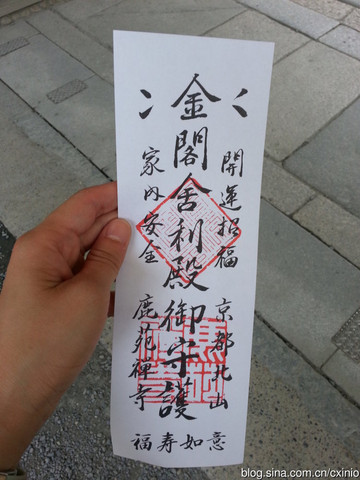 開運招福
京都北山
金閣舎利殿御守護
家内安全
鹿苑禅寺
福寿如意
blog.sina.com.cn/cxinio